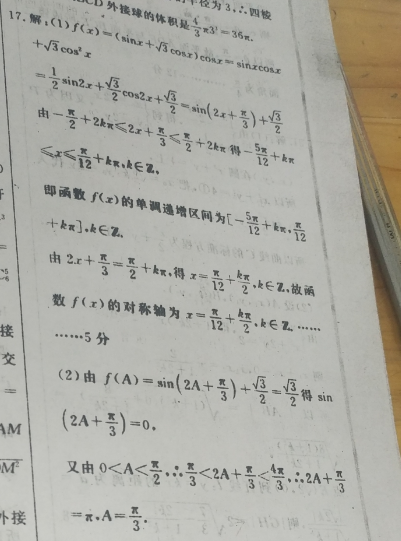 径为3,∴四棱
CD外接球的体积是4/3π3³=36π.
17.解:(1)f(x)=(sinx+√3cosx)cosx=sinxcosx
+√3cos²x
=1/2sin2x+√3/2cos2x+√3/2=sin(2x+π/3)+√3/2
由-π/2+2kπ≤2x+π/3≤π/2+2kπ得-5π/12+kπ
≤x≤π/12+kπ,k∈Z,
即函数f(x)的单调递增区间为[-5π/12+kπ,π/12
+kπ],k∈Z,
由2x+π/3=π/2+kπ,得x=π/12+kπ/2,k∈Z,故函
数f(x)的对称轴为x=π/12+kπ/2,k∈Z.……
……5分
(2)由f(A)=sin(2A+π/3)+√3/2=√3/2得sin
(2A+π/3)=0,
又由0<A<π/2,∴π/3<2A+π/3<4π/3,∴2A+π/3
=π,A=π/3.
接
交
=
AM
M²
外接